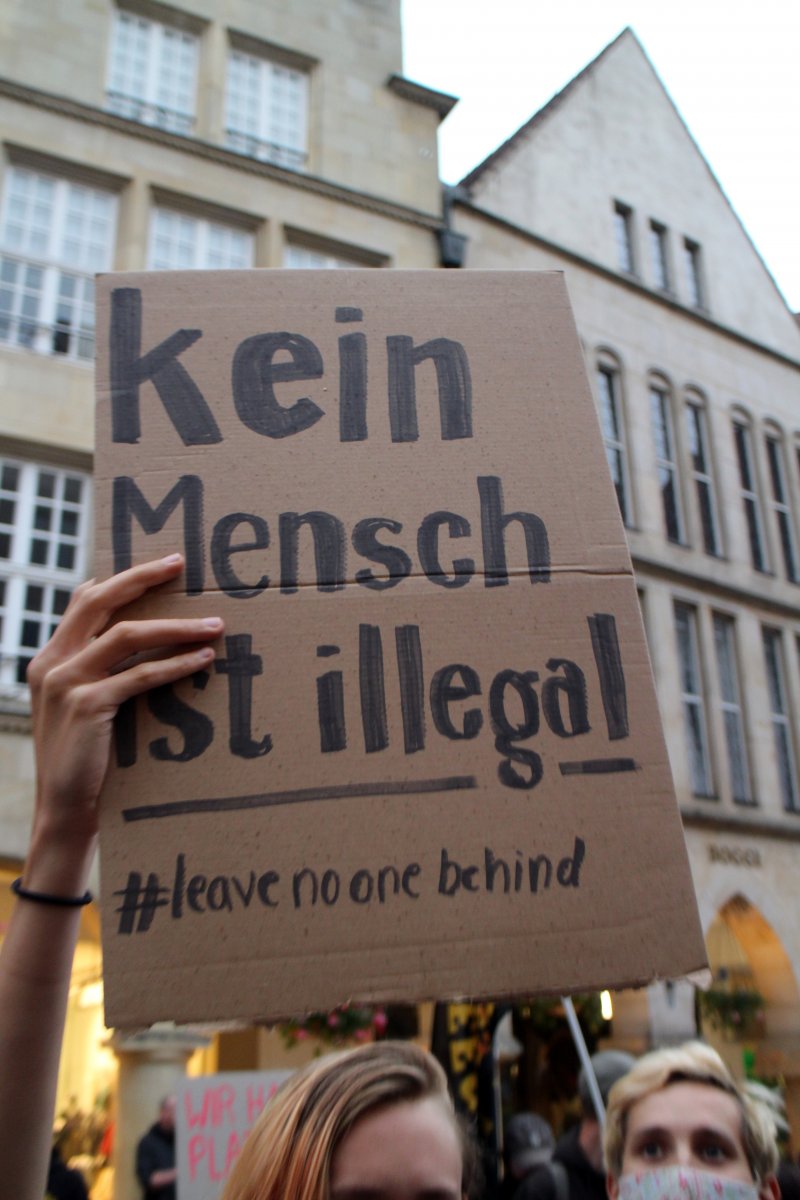 kein
Mensch
ist illegal
#leavenoonebehind
WIR H
PLA